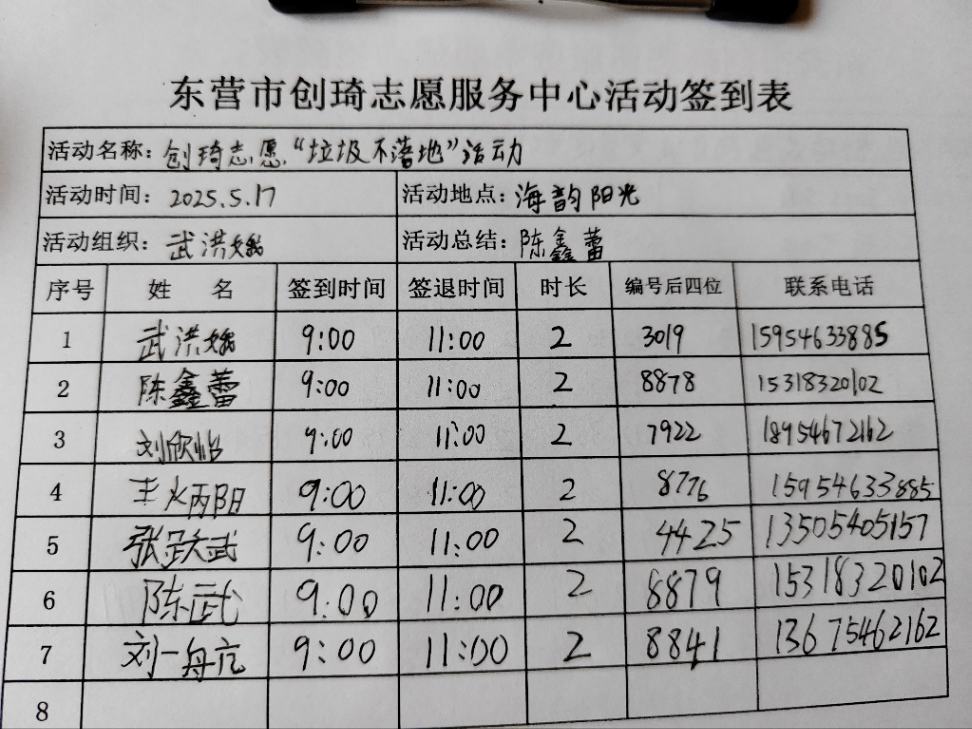 东营市创琦志愿服务中心活动签到表
活动名称：创琦志愿“垃圾不落地”活动
活动时间：2025.5.17 活动地点：海韵阳光
活动组织：武洪娥 活动总结：陈鑫蕾
序号 姓 名 签到时间 签退时间 时长 编号后四位 联系电话
1 武洪娥 9:00 11:00 2 3019 15954633885
2 陈鑫蕾 9:00 11:00 2 8878 15318320102
3 刘欣怡 9:00 11:00 2 7922 18954672162
4 王炳阳 9:00 11:00 2 8776 15954633885
5 张跃武 9:00 11:00 2 4425 13505405157
6 陈武 9:00 11:00 2 8879 15318320102
7 刘一舟 9:00 11:00 2 8841 13675462162
8